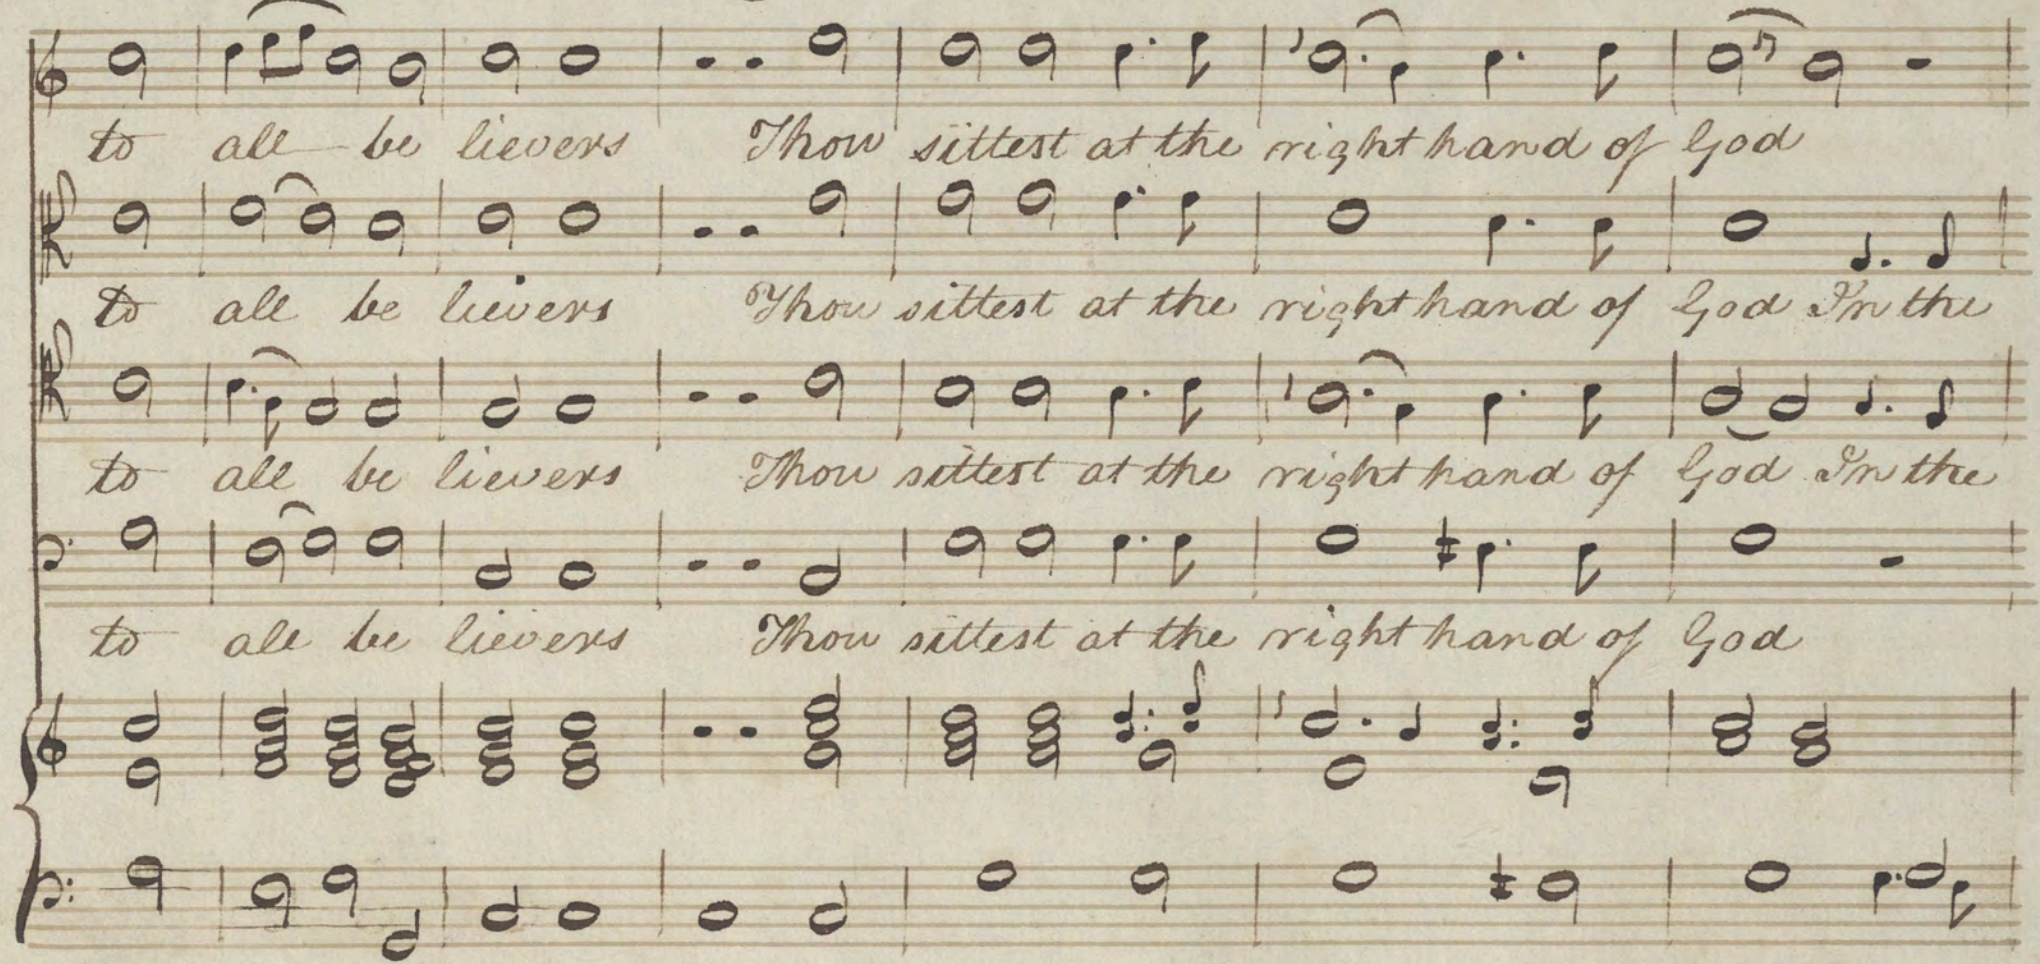 to all be lievers Thou sittest at the right hand of God
to all be lievers Thou sittest at the right hand of God In the
to all be lievers Thou sittest at the right hand of God In the
to all be lievers Thou sittest at the right hand of God